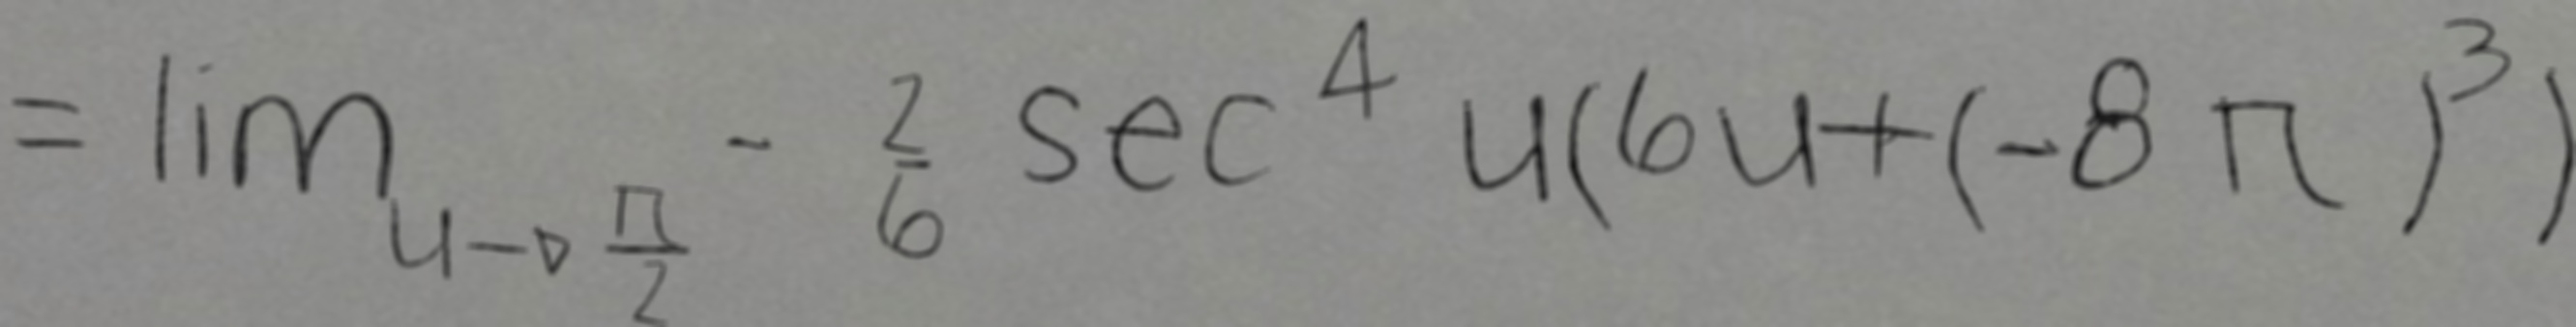 = lim_{u→π/2} - 2/6 sec^4 u(6u+(-8π)^3)